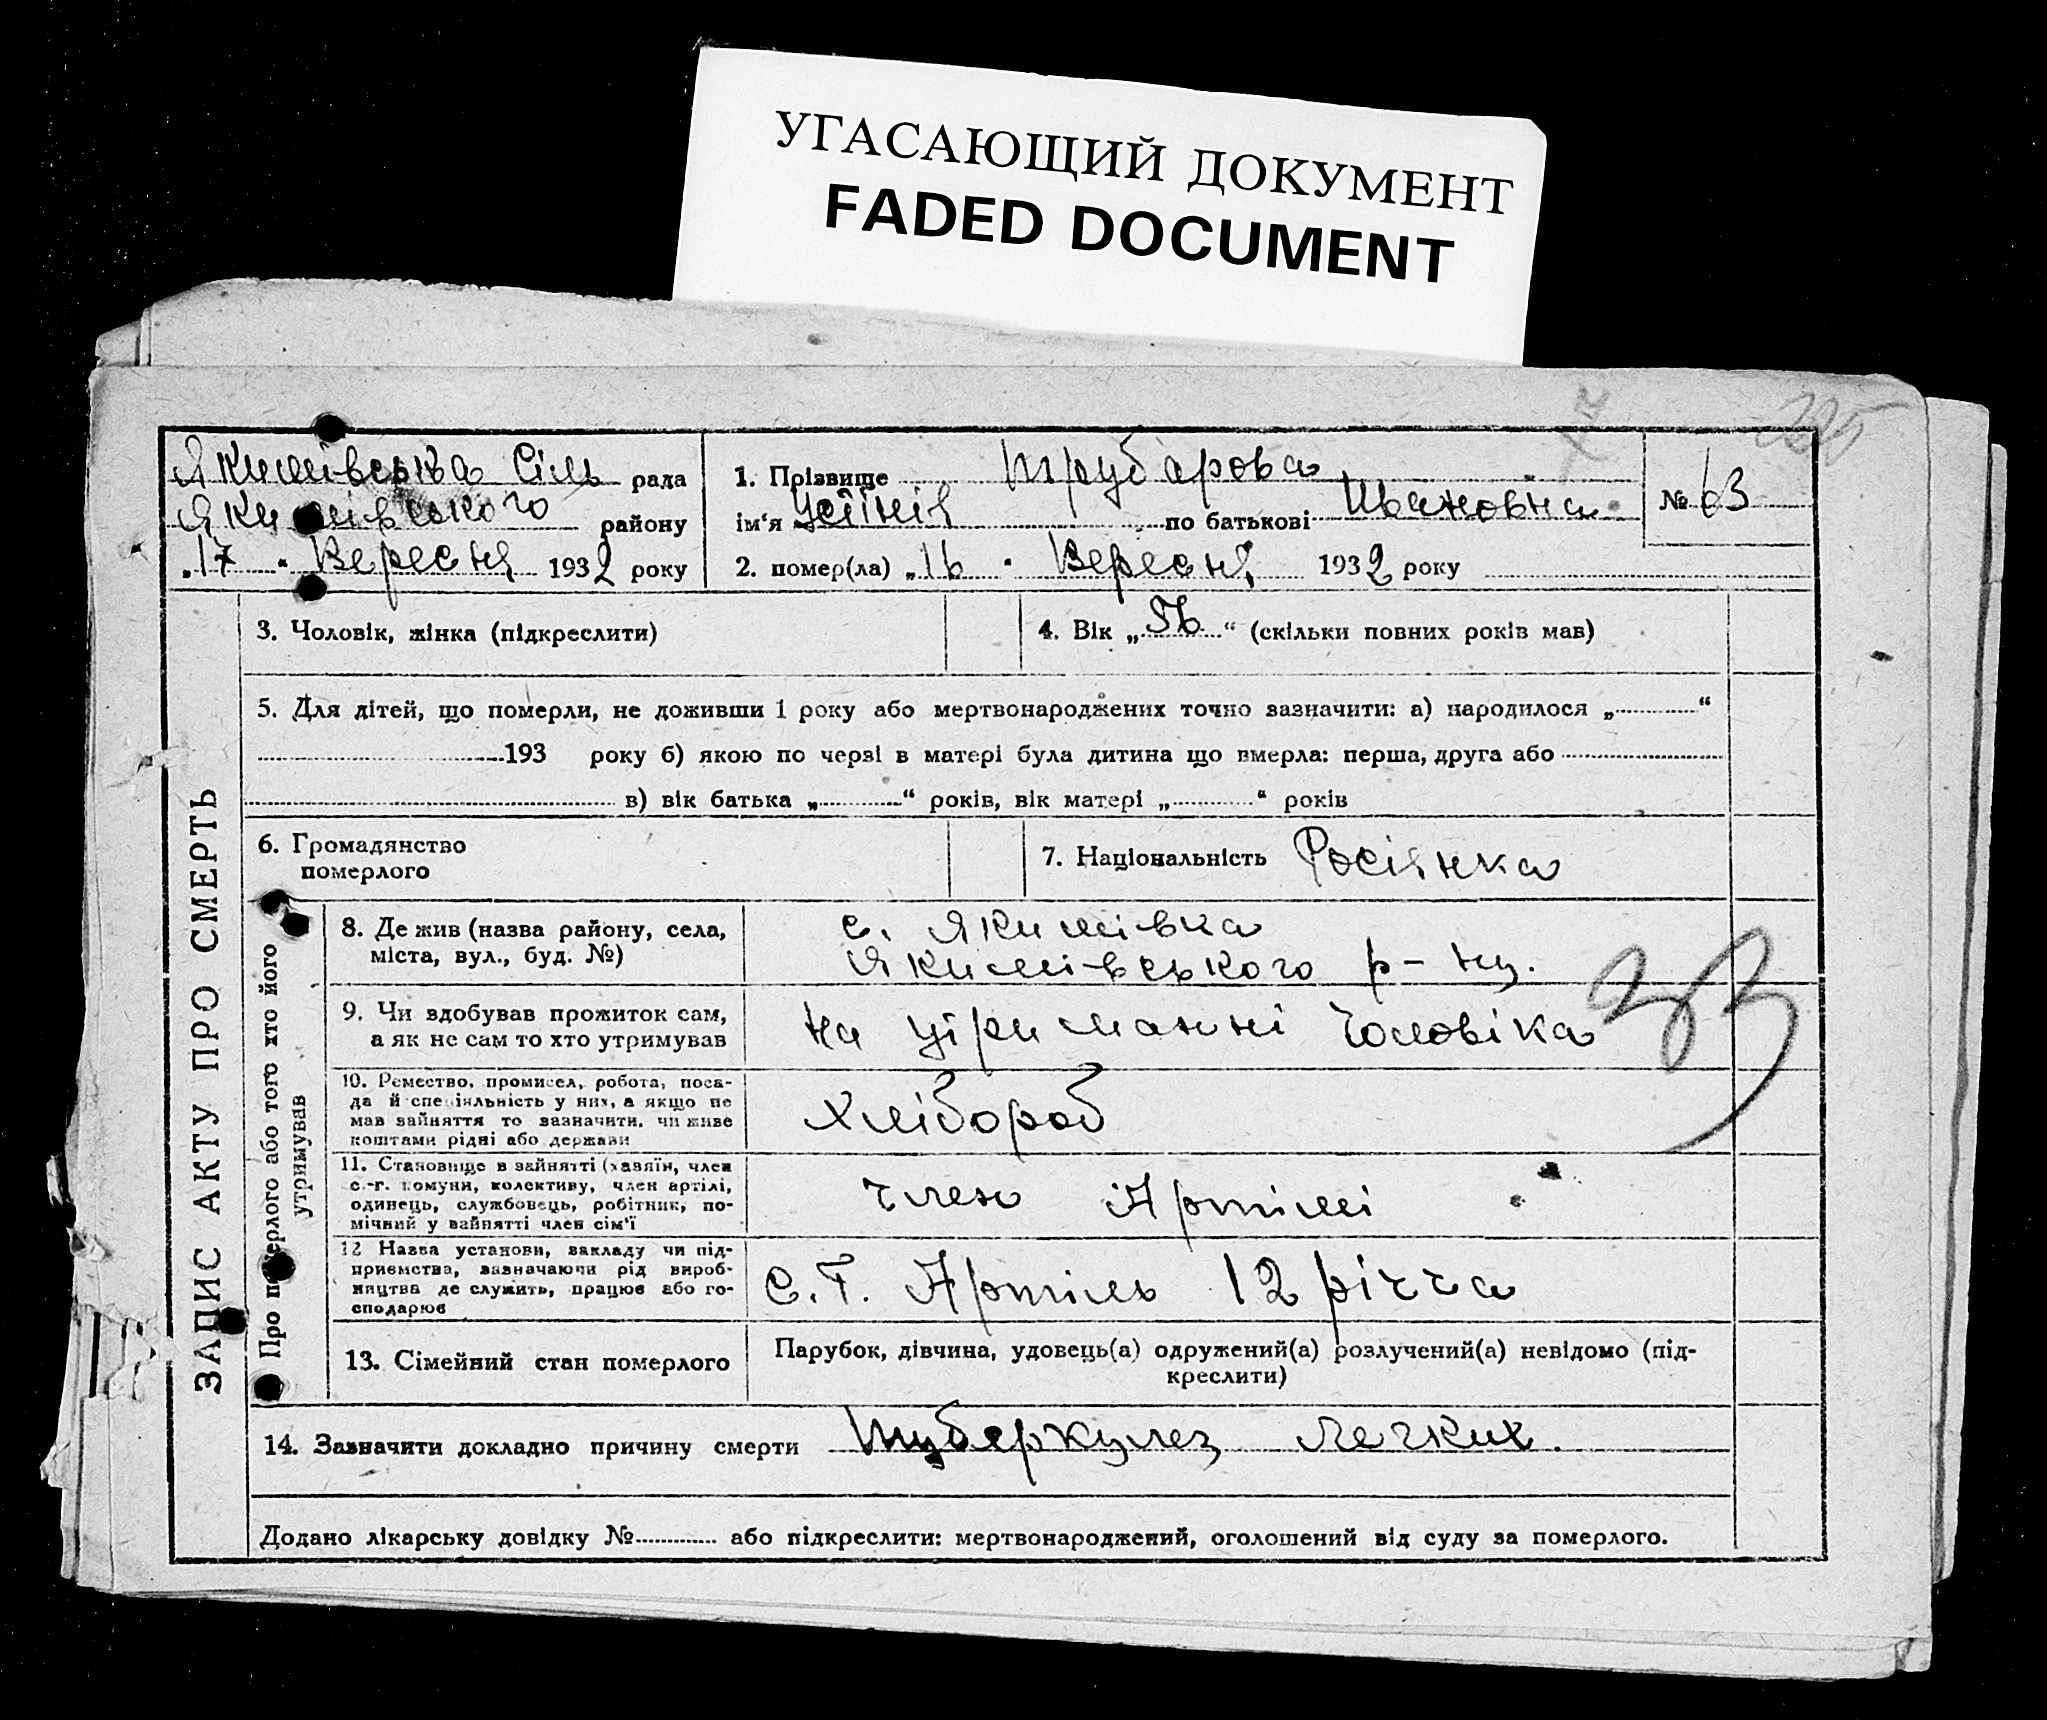 УГАСАЮЩИЙ ДОКУМЕНТ
FADED DOCUMENT
Якимівська Сіль рада
Якимівського району
„17 “ Вересня 1932 року
1. Прізвище Трубарова
ім‘я Устінія по батькові Ивановна
2. помер(ла) „16 “ Вересня 1932 року
№ 63
3. Чоловік, жінка (підкреслити)
4. Вік „56“ (скільки повних років мав)
5. Для дітей, що померли, не доживши 1 року або мертвонароджених точно зазначити: а) народилося „ “
193 року б) якою по черзі в матері була дитина що вмерла: перша, друга або
в) вік батька „ “ років, вік матері „ “ років
6. Громадянство
померлого
7. Національність Росіянка
ЗАПИС АКТУ ПРО СМЕРТЬ
Про померлого або того хто його
утримував
8. Де жив (назва району, села,
міста, вул., буд. №)
с. Якимівка
Якимівського р-ну.
9. Чи здобував прожиток сам,
а як не сам то хто утримував
на утриманні чоловіка
33
10. Ремество, промисел, робота, поса-
да й спеціяльність у них, а якщо не
мав зайняття то зазначити, чи живе
коштами рідні або держави
Хлібороб
11. Становище в зайнятті (хазяїн, член
с.-г. комуни, колективу, член артілі,
одинець, службовець, робітник, по-
мічний у зайнятті член сім'ї
член Артілі
12 Назва установи, закладу чи під-
приємства, зазначаючи рід вироб-
ництва де служить, працює або го-
сподарює
С.Г. Артіль 12 річча
13. Сімейний стан померлого
Парубок, дівчина, удовець(а) одружений(а) розлучений(а) невідомо (під-
креслити)
14. Зазначити докладно причину смерти Туберкулез легких.
Додано лікарську довідку № або підкреслити: мертвонароджений, оголошений від суду за померлого.